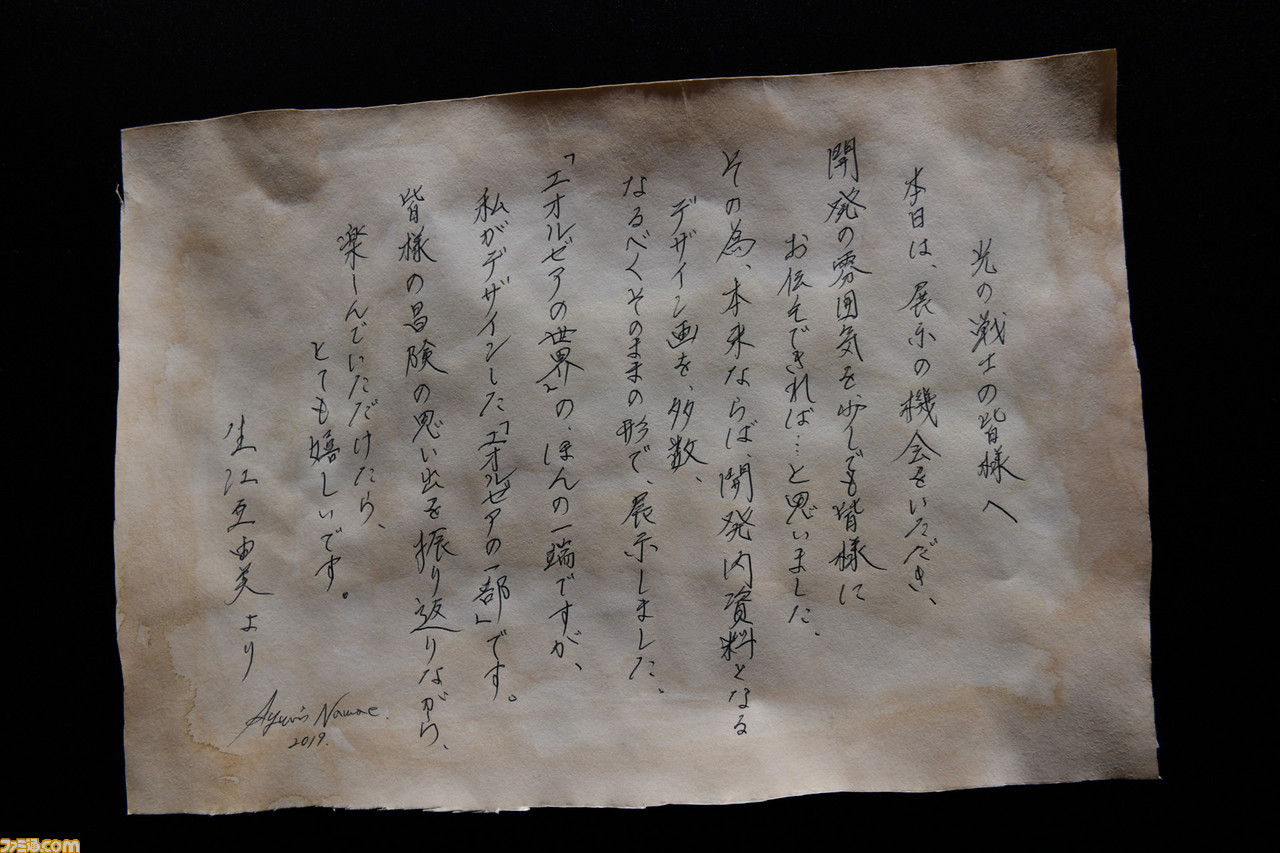 光の戦士の皆様へ
本日は、展示の機会をいただき、
開発の雰囲気を、少しでも皆様に
お伝えできれば…と思いました。
その為、本来ならば、開発内資料となる
デザイン画を、多数、
なるべくそのままの形で、展示しました。
「エオルゼアの世界」の、ほんの一端ですが、
私がデザインした「エオルゼアの一部」です。
皆様の冒険の思い出を振り返りながら、
楽しんでいただけたら、
とても嬉しいです。
生江亜由美より
Ayumi Namae.
2019.
ファミ通.com